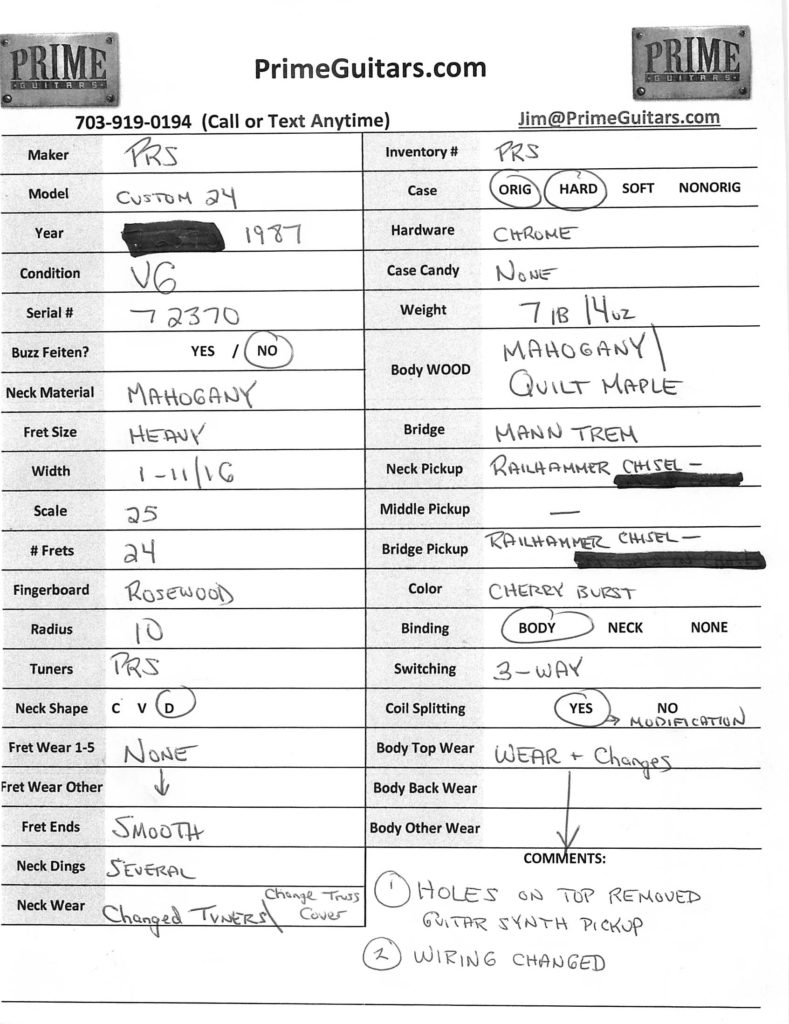 PRIME
GUITARS
PrimeGuitars.com
PRIME
GUITARS
703-919-0194 (Call or Text Anytime)
Jim@PrimeGuitars.com
Maker PRS
Model CUSTOM 24
Year 1987
Condition VG
Serial # 7 2370
Buzz Feiten? YES / NO
Neck Material MAHOGANY
Fret Size HEAVY
Width 1-11/16
Scale 25
# Frets 24
Fingerboard ROSEWOOD
Radius 10
Tuners PRS
Neck Shape C V D
Fret Wear 1-5 NONE
Fret Wear Other
Fret Ends SMOOTH
Neck Dings SEVERAL
Neck Wear Changed TUNERS\ Change Truss
Cover
Inventory # PRS
Case ORIG HARD SOFT NONORIG
Hardware CHROME
Case Candy NONE
Weight 7 lB 14oz
Body WOOD MAHOGANY\
QUILT MAPLE
Bridge MANN TREM
Neck Pickup RAILHAMMER CHISEL —
Middle Pickup —
Bridge Pickup RAILHAMMER CHISEL —
Color CHERRY BURST
Binding BODY NECK NONE
Switching 3-WAY
Coil Splitting YES NO
→ MODIFICATION
Body Top Wear WEAR + Changes
Body Back Wear
Body Other Wear
COMMENTS:
1 HOLES ON TOP REMOVED
GUITAR SYNTH PICKUP
2 WIRING CHANGED